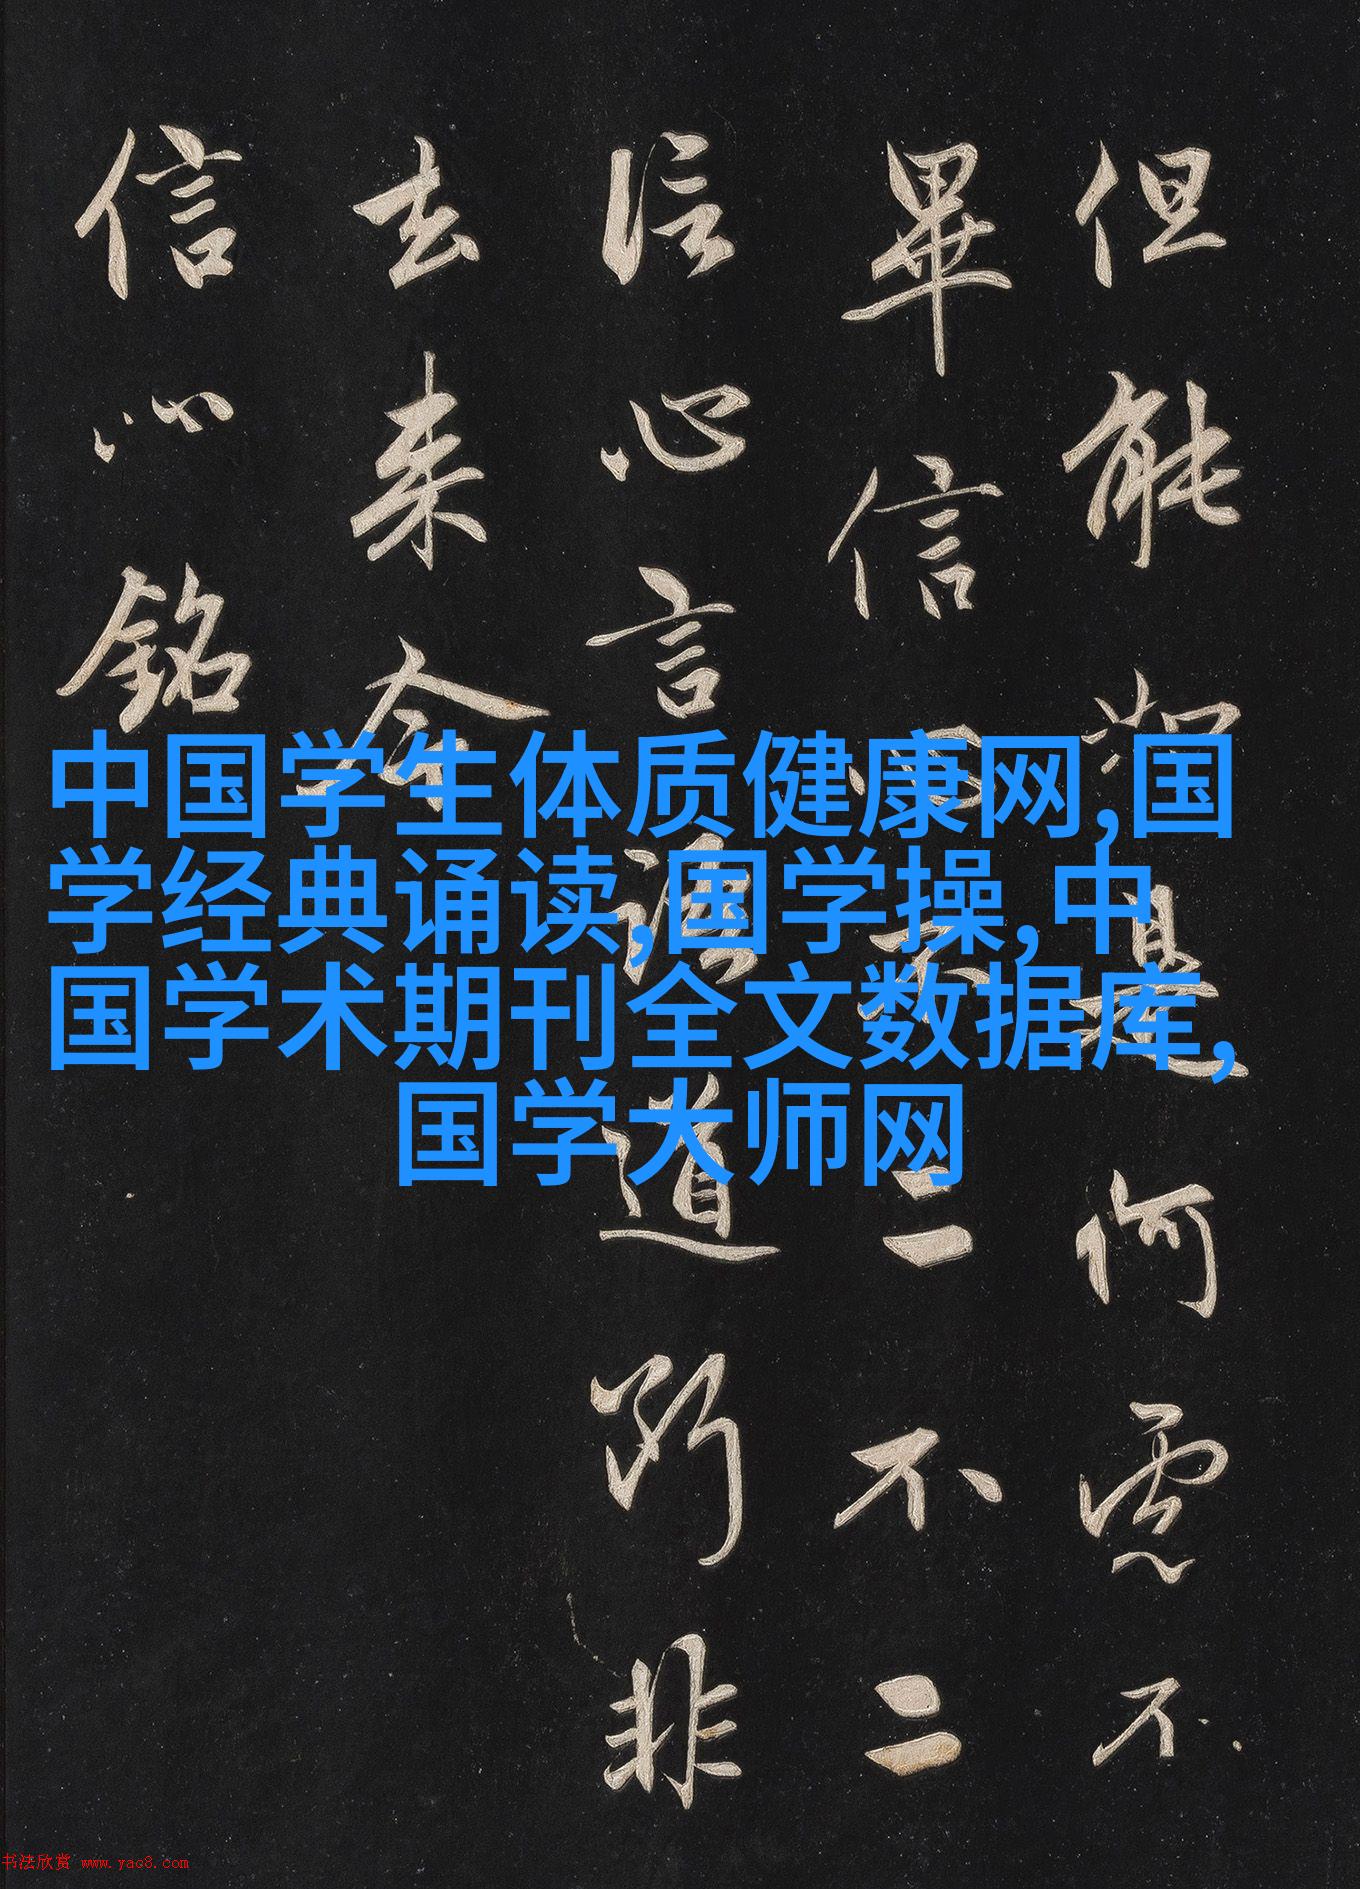 但能如是何慮不
畢信心不二不二
信心言語道斷非
去來今
信心銘
中国学生体质健康网,国
学经典诵读,国学操,中
国学术期刊全文数据库,
国学大师网
书法欣赏 www.yac8.com